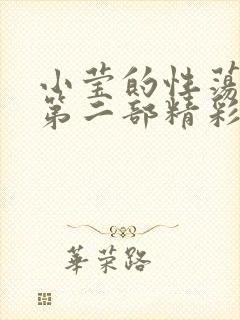 小莹的性荡
第二部精彩
華荣路